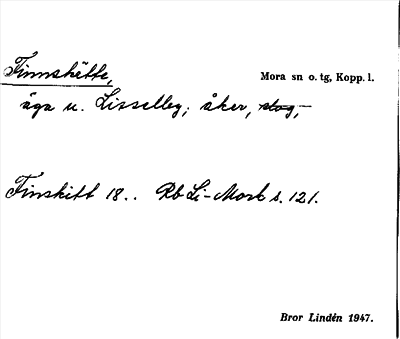 Finnskètte,
Mora sn o. tg, Kopp. l.
äga u. Lisselby; åker, slog,
Finskitt 18.. Rb Li-Mork s. 121.
Bror Lindén 1947.